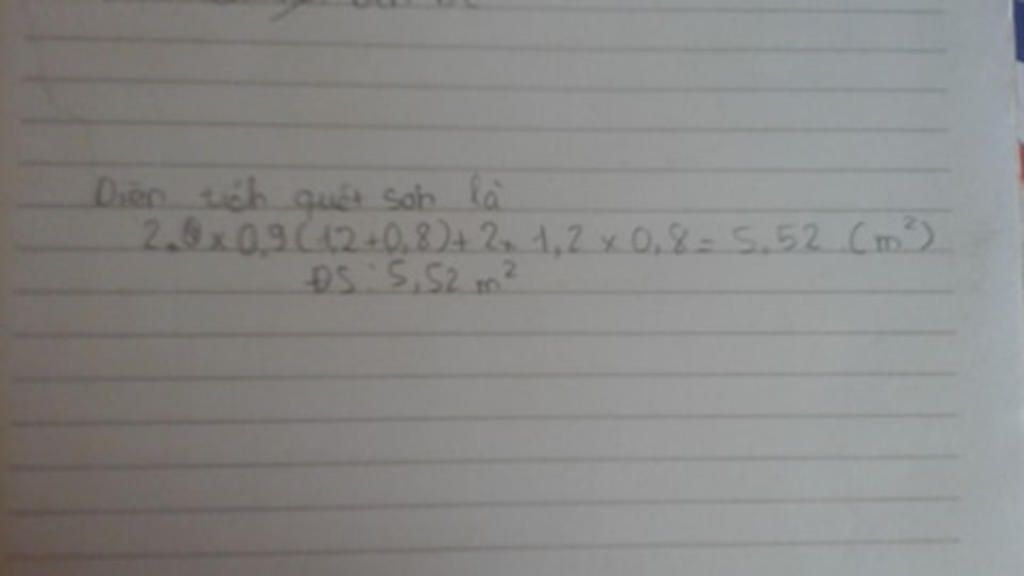 Diện tích quét sơn là
2 x 0,9 (1,2 + 0,8) + 2 x 1,2 x 0,8 = 5,52 (m²)
ĐS: 5,52 m²